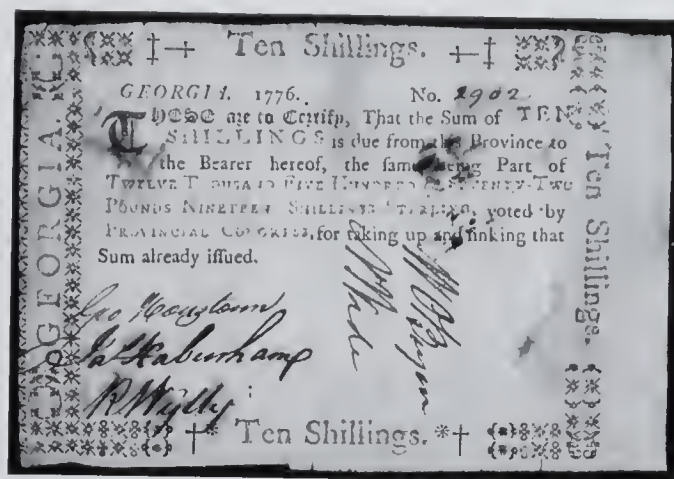 Ten Shillings.
GEORGIA. 1776. No. 2902
THESE are to Certify, That the Sum of TEN
SHILLINGS is due from this Province to
the Bearer hereof, the ſame being Part of
TWELVE THOUSAND FIVE HUNDRED SEVENTY-TWO
POUNDS NINETEEN SHILLINGS STERLING, voted by
PROVINCIAL CONGRESS, for taking up and ſinking that
Sum already iſſued.
Geo Houstoun
Jas Habersham
R Wylly
W
Ten Shillings.
GEORGIA.
Ten Shillings.